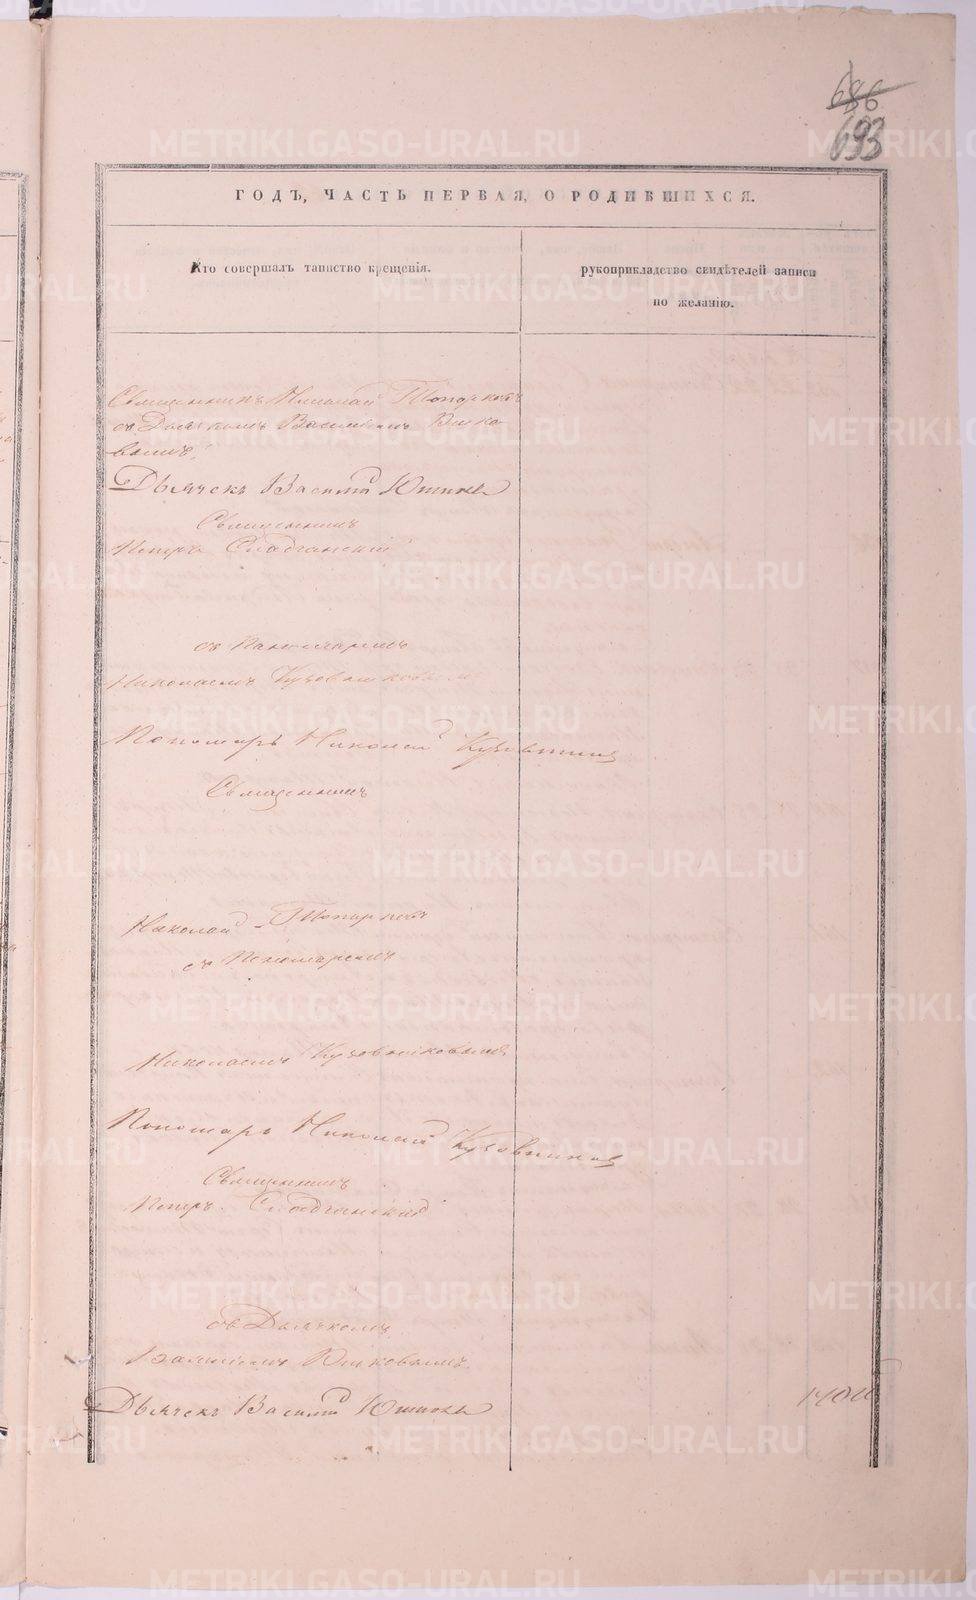 686
693
ГОДЪ, ЧАСТЬ ПЕРВАЯ, О РОДИВШИХСЯ.
Кто совершалъ таинство крещенія.
рукоприкладство свидѣтелей записи
по желанію.
Священникъ Николай Топорковъ
съ Дьячкомъ Василіемъ Юшко-
вымъ.
Дьячекъ Василій Юшковъ
Священникъ
Петръ Слодчанскій
съ Пономаремъ
Николаемъ Кузовниковымъ
Пономарь Николай Кузовниковъ
Священникъ
Николай Топорковъ
съ Пономаремъ
Николаемъ Кузовниковымъ
Пономарь Николай Кузовниковъ
Священникъ
Петръ Слодчанскій
съ Дьячкомъ
Василіемъ Юшковымъ.
Дьячекъ Василій Юшковъ
METRIKI.GASO-URAL.RU